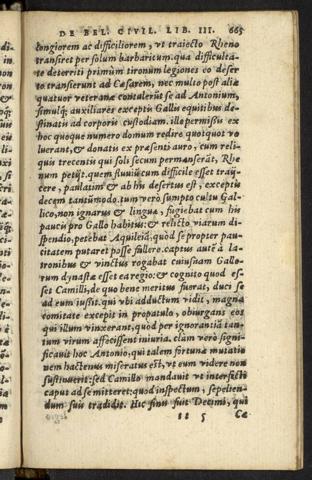 DE BEL. CIVIL. LIB. III. 665
longiorem ac difficiliorem, vt traiecto Rheno
transiret per solum barbaricum. qua difficulta-
te deterriti primùm tironum legiones eo deser
to transierunt ad Cæsarem, nec multo post aliæ
quatuor veteranæ contulerūt se ad Antonium,
simulq́; auxiliares exceptis Gallis equitibus de-
stinatis ad corporis custodiam. ille permissis ex
hoc quoque numero domum redire quotquot vo
luerant, & donatis ex præsenti auro, cum reli-
quis trecentis qui soli secum permanserāt, Rhe
num petijt. quem fluuiū cum difficile esset traij̄-
cere, paulatim & ab his desertus est, exceptis
decem tantūmodo. tum verò sumpto cultu Gal-
lico, non ignarus & linguæ, fugiebat cum his
paucis pro Gallo habitus: & relicto viarum di-
spendio, petebat Aquileiā, quòd se propter pau-
citatem putaret posse fallere. captus autē à la-
tronibus & vinctus rogabat cuiusnam Gallo-
rum dynastæ esset ea regio: & cognito quod es-
set Camilli, de quo bene meritus fuerat, duci se
ad eum iussit. qui vbi adductum vidit, magna
comitate excepit in propatulo, obiurgans eos
qui illum vinxerant, quòd per ignorantiā tan-
tum virum affecissent iniuria. clàm verò signi-
ficauit hoc Antonio, qui talem fortunæ mutatio
nem hactenus miseratus est, vt eum videre non
sustinuerit: sed Camillo mandauit vt interfecti
caput ad se mitteret: quod inspectum, sepelien-
dum suis tradidit. Hic finis fuit Decimi, qui
tt 5 Cæ